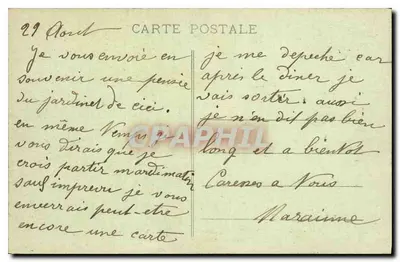 CARTE POSTALE
29 Aout
Je vous envoie en
souvenir une pensie
du jardinet de cici.
en même Temps je
vous dirais que je
crois partir mardi matin
sauf imprevu je vous
enverrais peut-etre
encore une carte
je me depeche car
après le diner je
vais sortir. aussi
je n'en dit pas bien
long et a bientot
Caresses a Nous
CPAPHIL